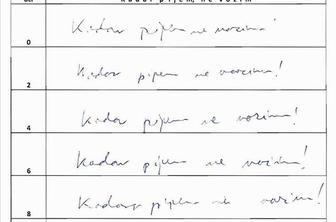 Kadar pijem, ne vozim
0 Kadar pijem ne vozim!
2 Kadar pijem ne vozim!
4 Kadar pijem ne vozim!
6 Kadar pijem ne vozim!
8 Kadar pijem ne vozim!